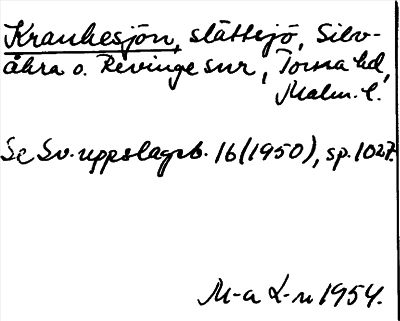 Krankesjön, slättsjö, Silv-
åkra o. Revinge snr, Torna hd,
Malm. l.
Se Sv. uppslagsb. 16 (1950), sp. 1027.
M-a L-n 1954.